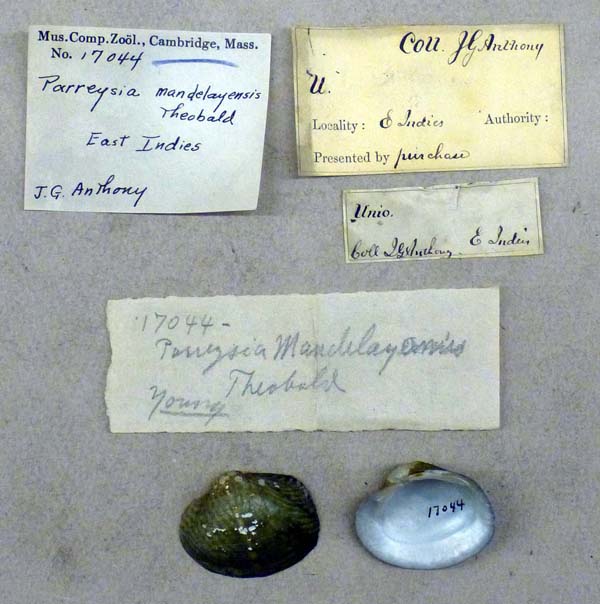 Mus.Comp.Zoöl., Cambridge, Mass.
No. 17044
Parreysia mandelayensis
Theobald
East Indies
J.G. Anthony
Coll. JG Anthony
U.
Locality: E Indies Authority:
Presented by purchase
Unio.
Coll JG Anthony. E Indies
17044-
Parreysia Mandelayensis
Theobald
Young
17044